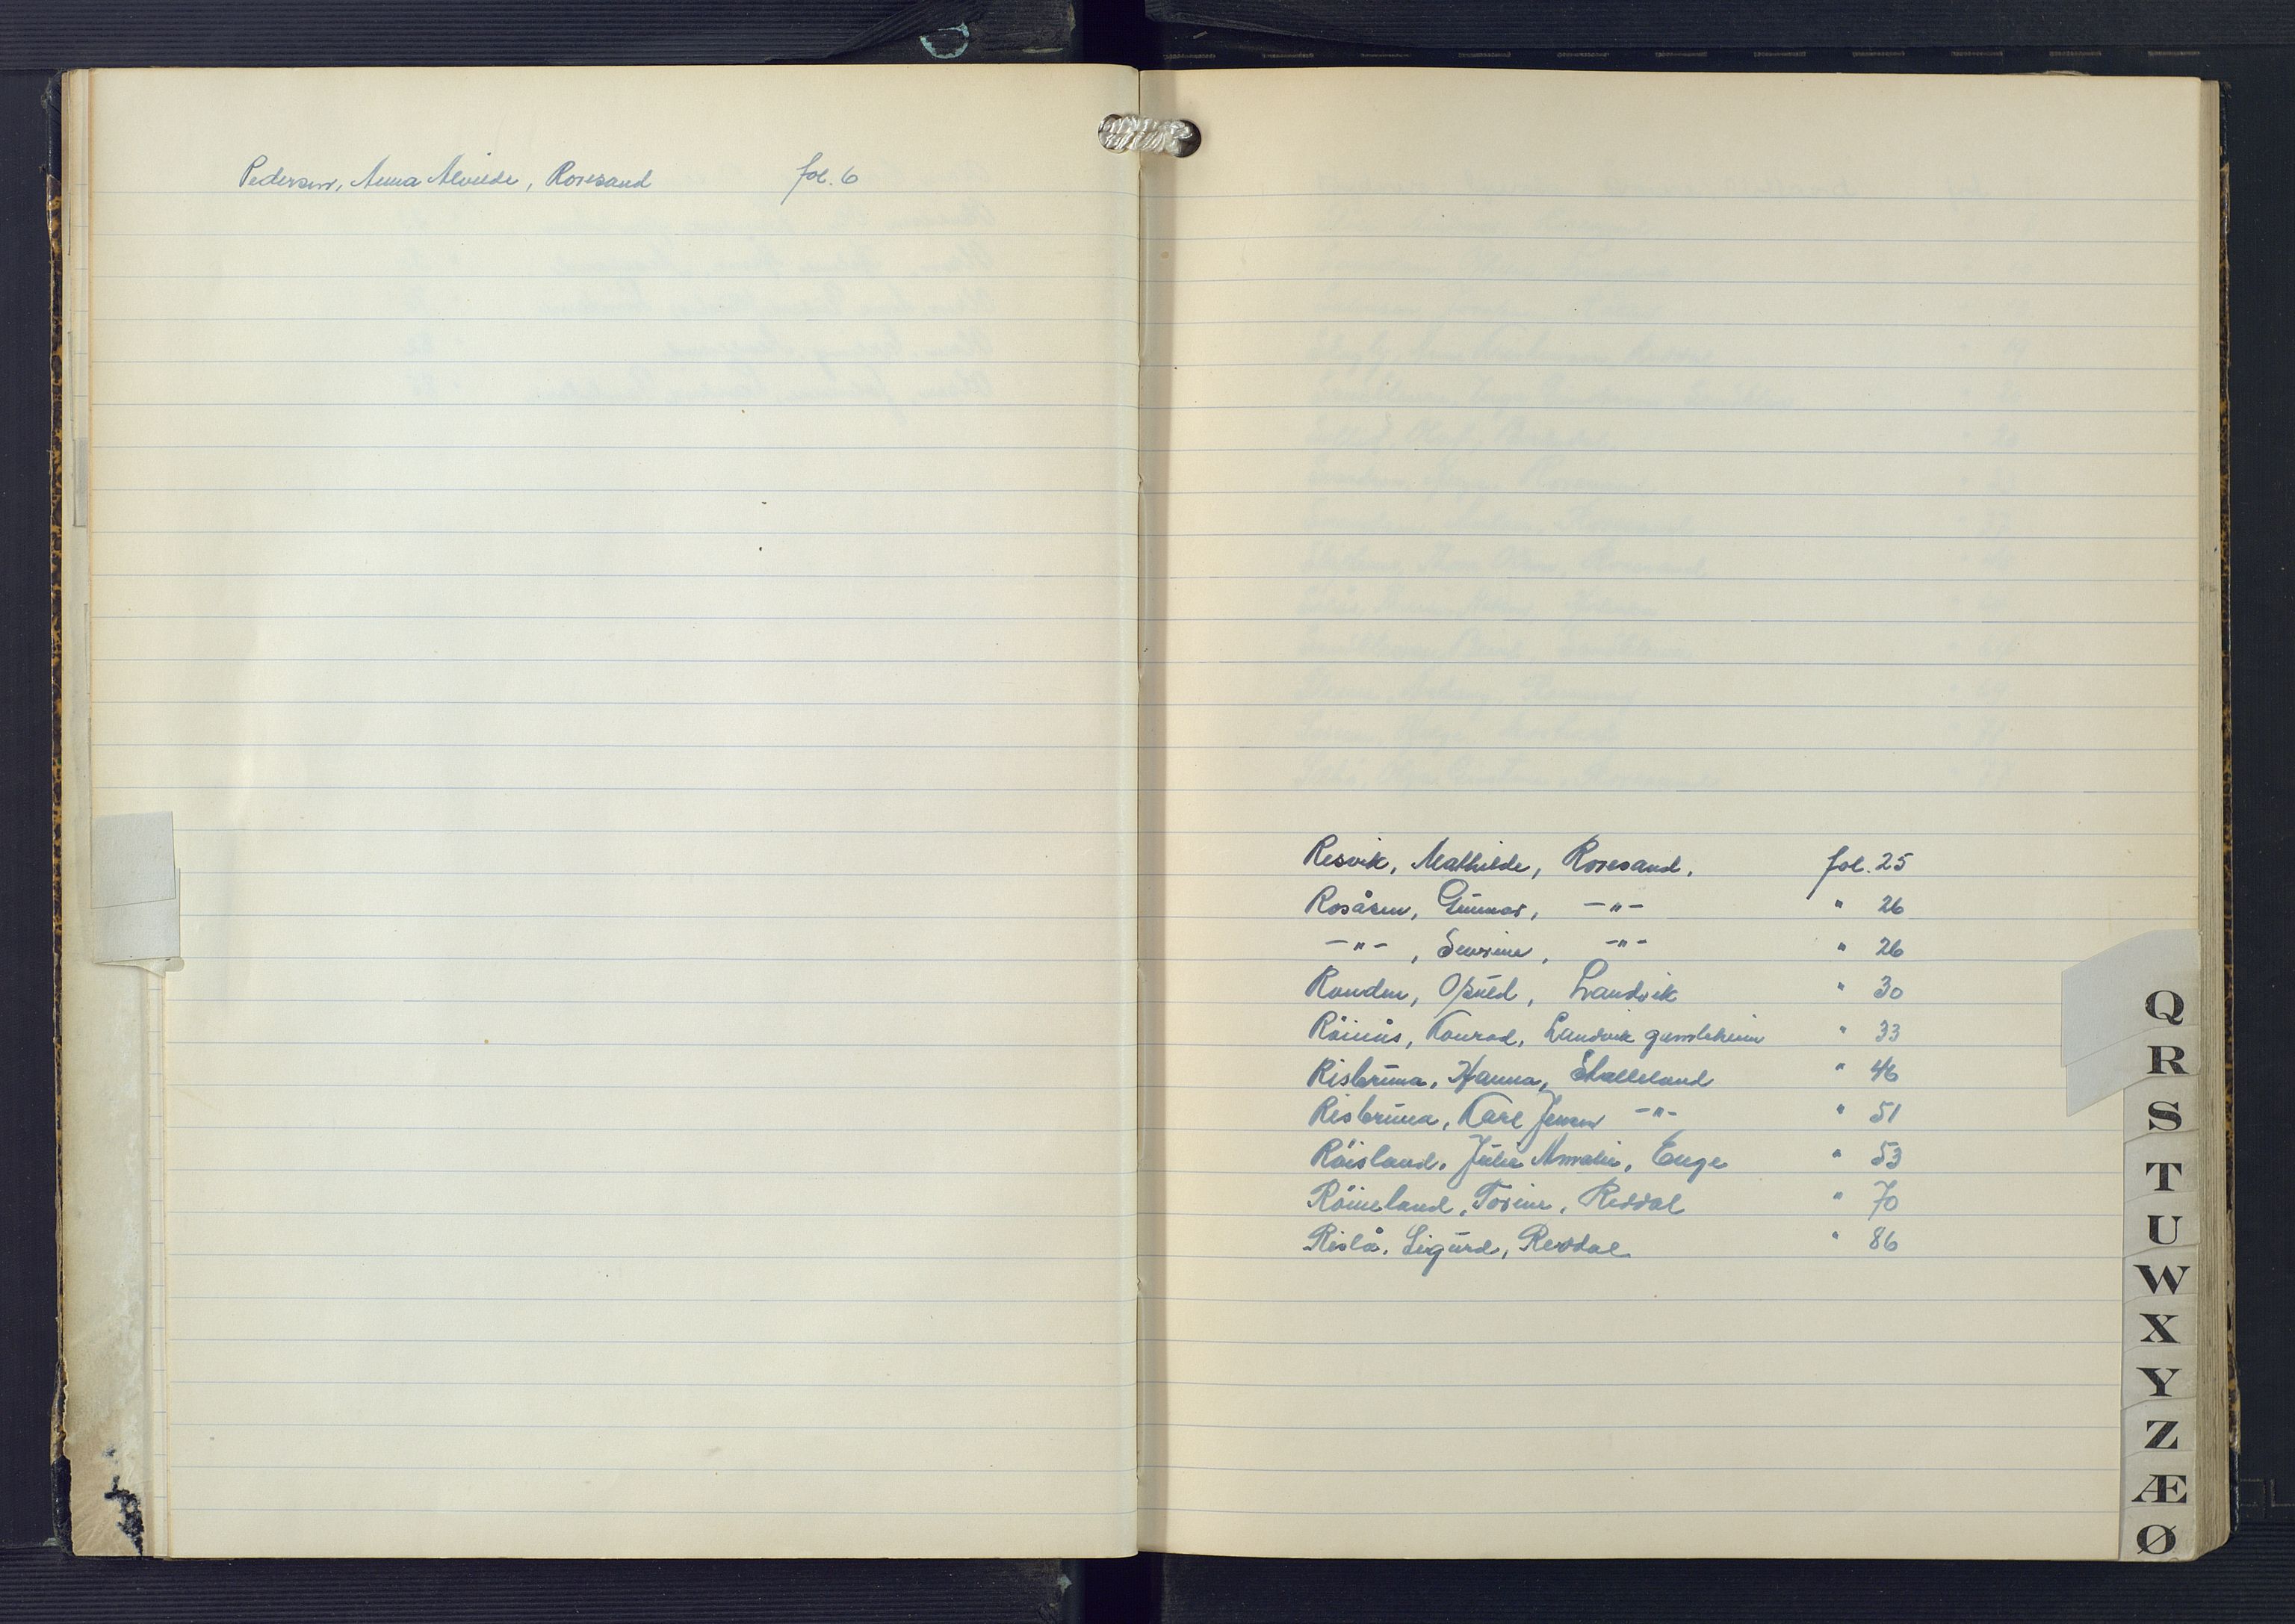 Pedersen, Anna Alvilde, Roresand fol. 6
Resvik, Mathilde, Roresand, fol. 25
Rosåsen, Gunnar, -"- " 26
-"- , Severine, -"- " 26
Ronden, Ofsuld, Landvik " 30
Röinås, Konrad, Landvik gamleheim " 33
Risbruna, Hanna, Skalleland " 46
Risbruna, Karl Jensen -"- " 51
Röisland, Julie Amalie, Enge " 53
Röineland, Torine, Reddal " 70
Rislå, Sigurd, Reddal " 86
Q
R
S
T
U
W
X
Y
Z
Æ
Ø